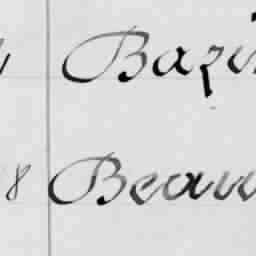 Bazi
8 Beau